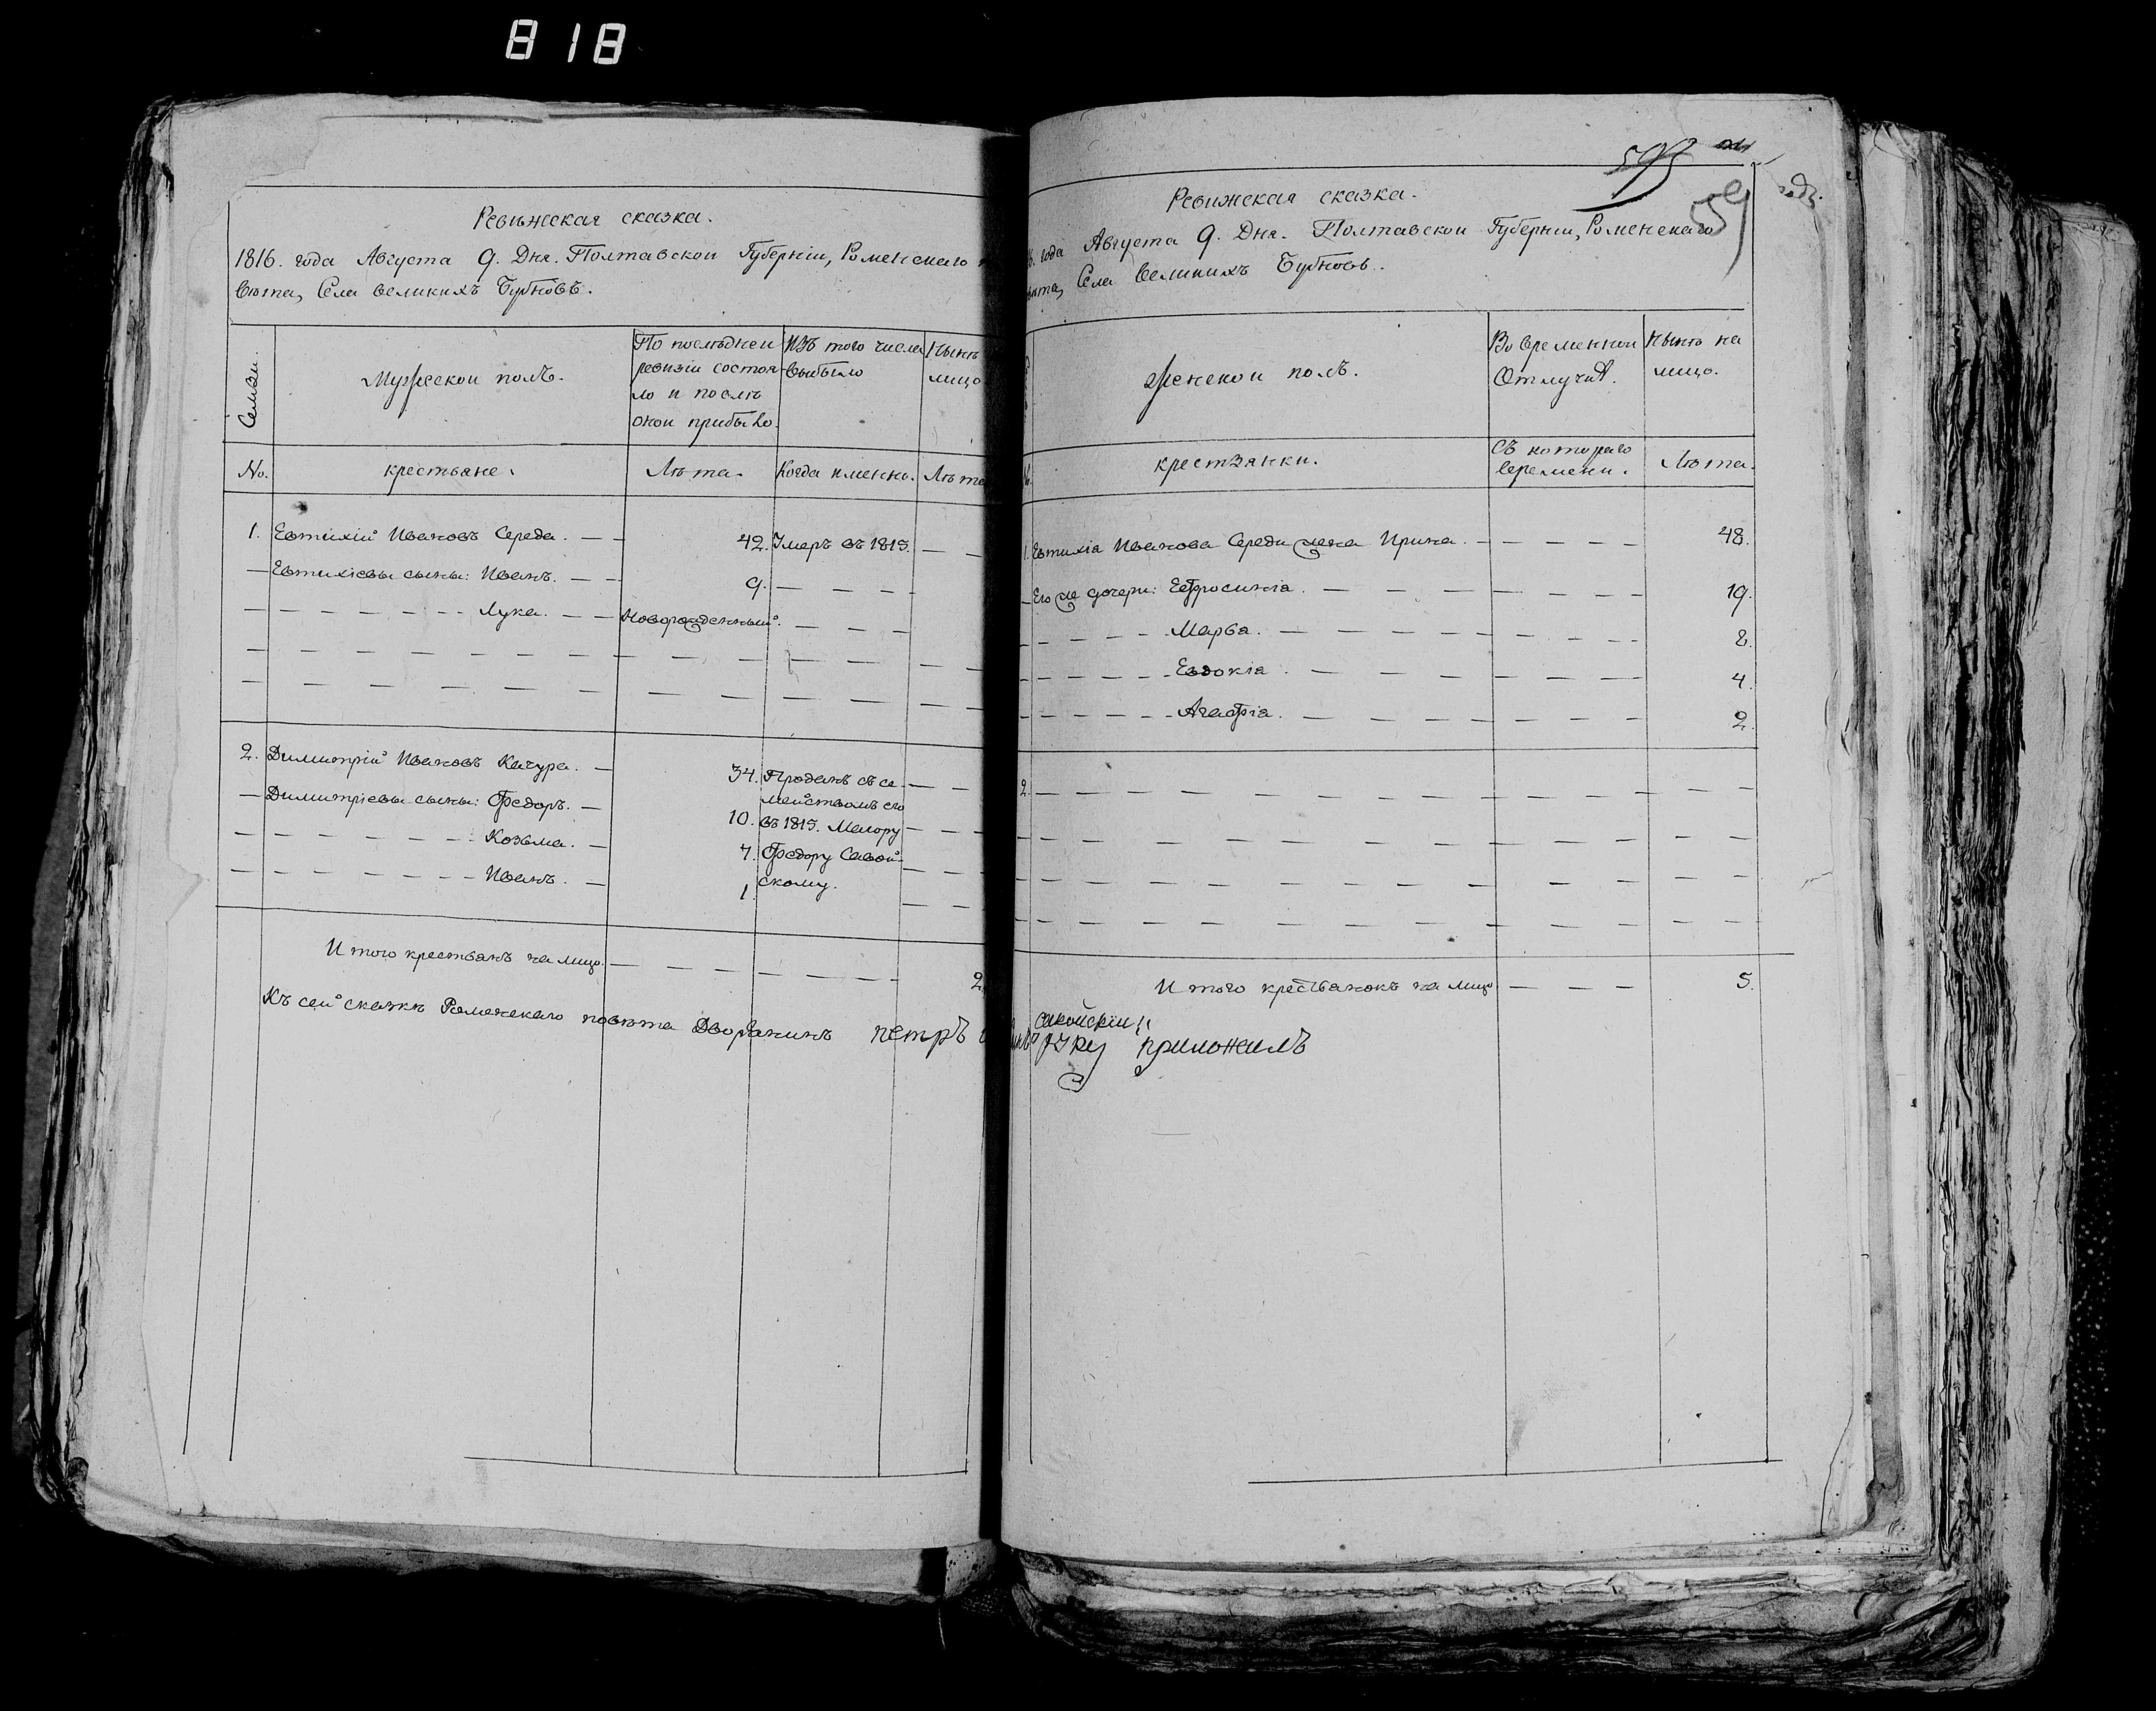 818
Ревижская сказка.
1816. года Августа 9. Дня. Полтавской Губерніи, Роменскаго
вѣта, Села Великихъ Бубновъ.
Семьи.
Мужескои полъ.
По послѣднеи
ревизіи состоя
ло и послѣ
онои прибыло.
Изъ того числа
выбыло
Нынѣ
лицо
No.
крестьяне.
Лѣта.
Когда именно.
Лѣта
1. Евтихій Ивановъ Середа. — — 42. Умеръ въ 1815. — —
— Евтихіевы сыны: Иванъ. — — 9. — — — —
— — — — — — Лука. — — Новорожденный. — — —
2. Димитрій Ивановъ Качура. — 34. Проданъ съ се
— Димитріевы сыны: Федоръ. — 10. мействомъ его
— — — — — — Козьма. — 7. въ 1815. Маіору
— — — — — — Иванъ. — 1. Федору Савой-
скому.
Итого крестьянъ на лицо. — — — — — — 2
Къ сей сказкѣ Роменскаго повѣта Дворянинъ петръ
595
59
Ревижская сказка.
6. года Августа 9. Дня. Полтавскои Губерніи, Роменскаго
вѣта, Села Великихъ Бубновъ.
Женскои полъ.
Во временнои
Отлучкѣ.
Нынѣ на
лицо.
крестьянки.
Съ котораго
времени.
Лѣта.
1. Евтихіа Иванова Середи жена Ирина. — — — — — 48.
— Его же дочери: Евфросиніа. — — — — — 19.
— — — — — Марѳа. — — — — — 8.
— — — — — Евдокіа. — — — — — 4.
— — — — — Агафіа. — — — — — 2.
2. — — — — — — — —
Итого крестьянокъ на лицо — — — 5.
савойскіи
руку приложилъ